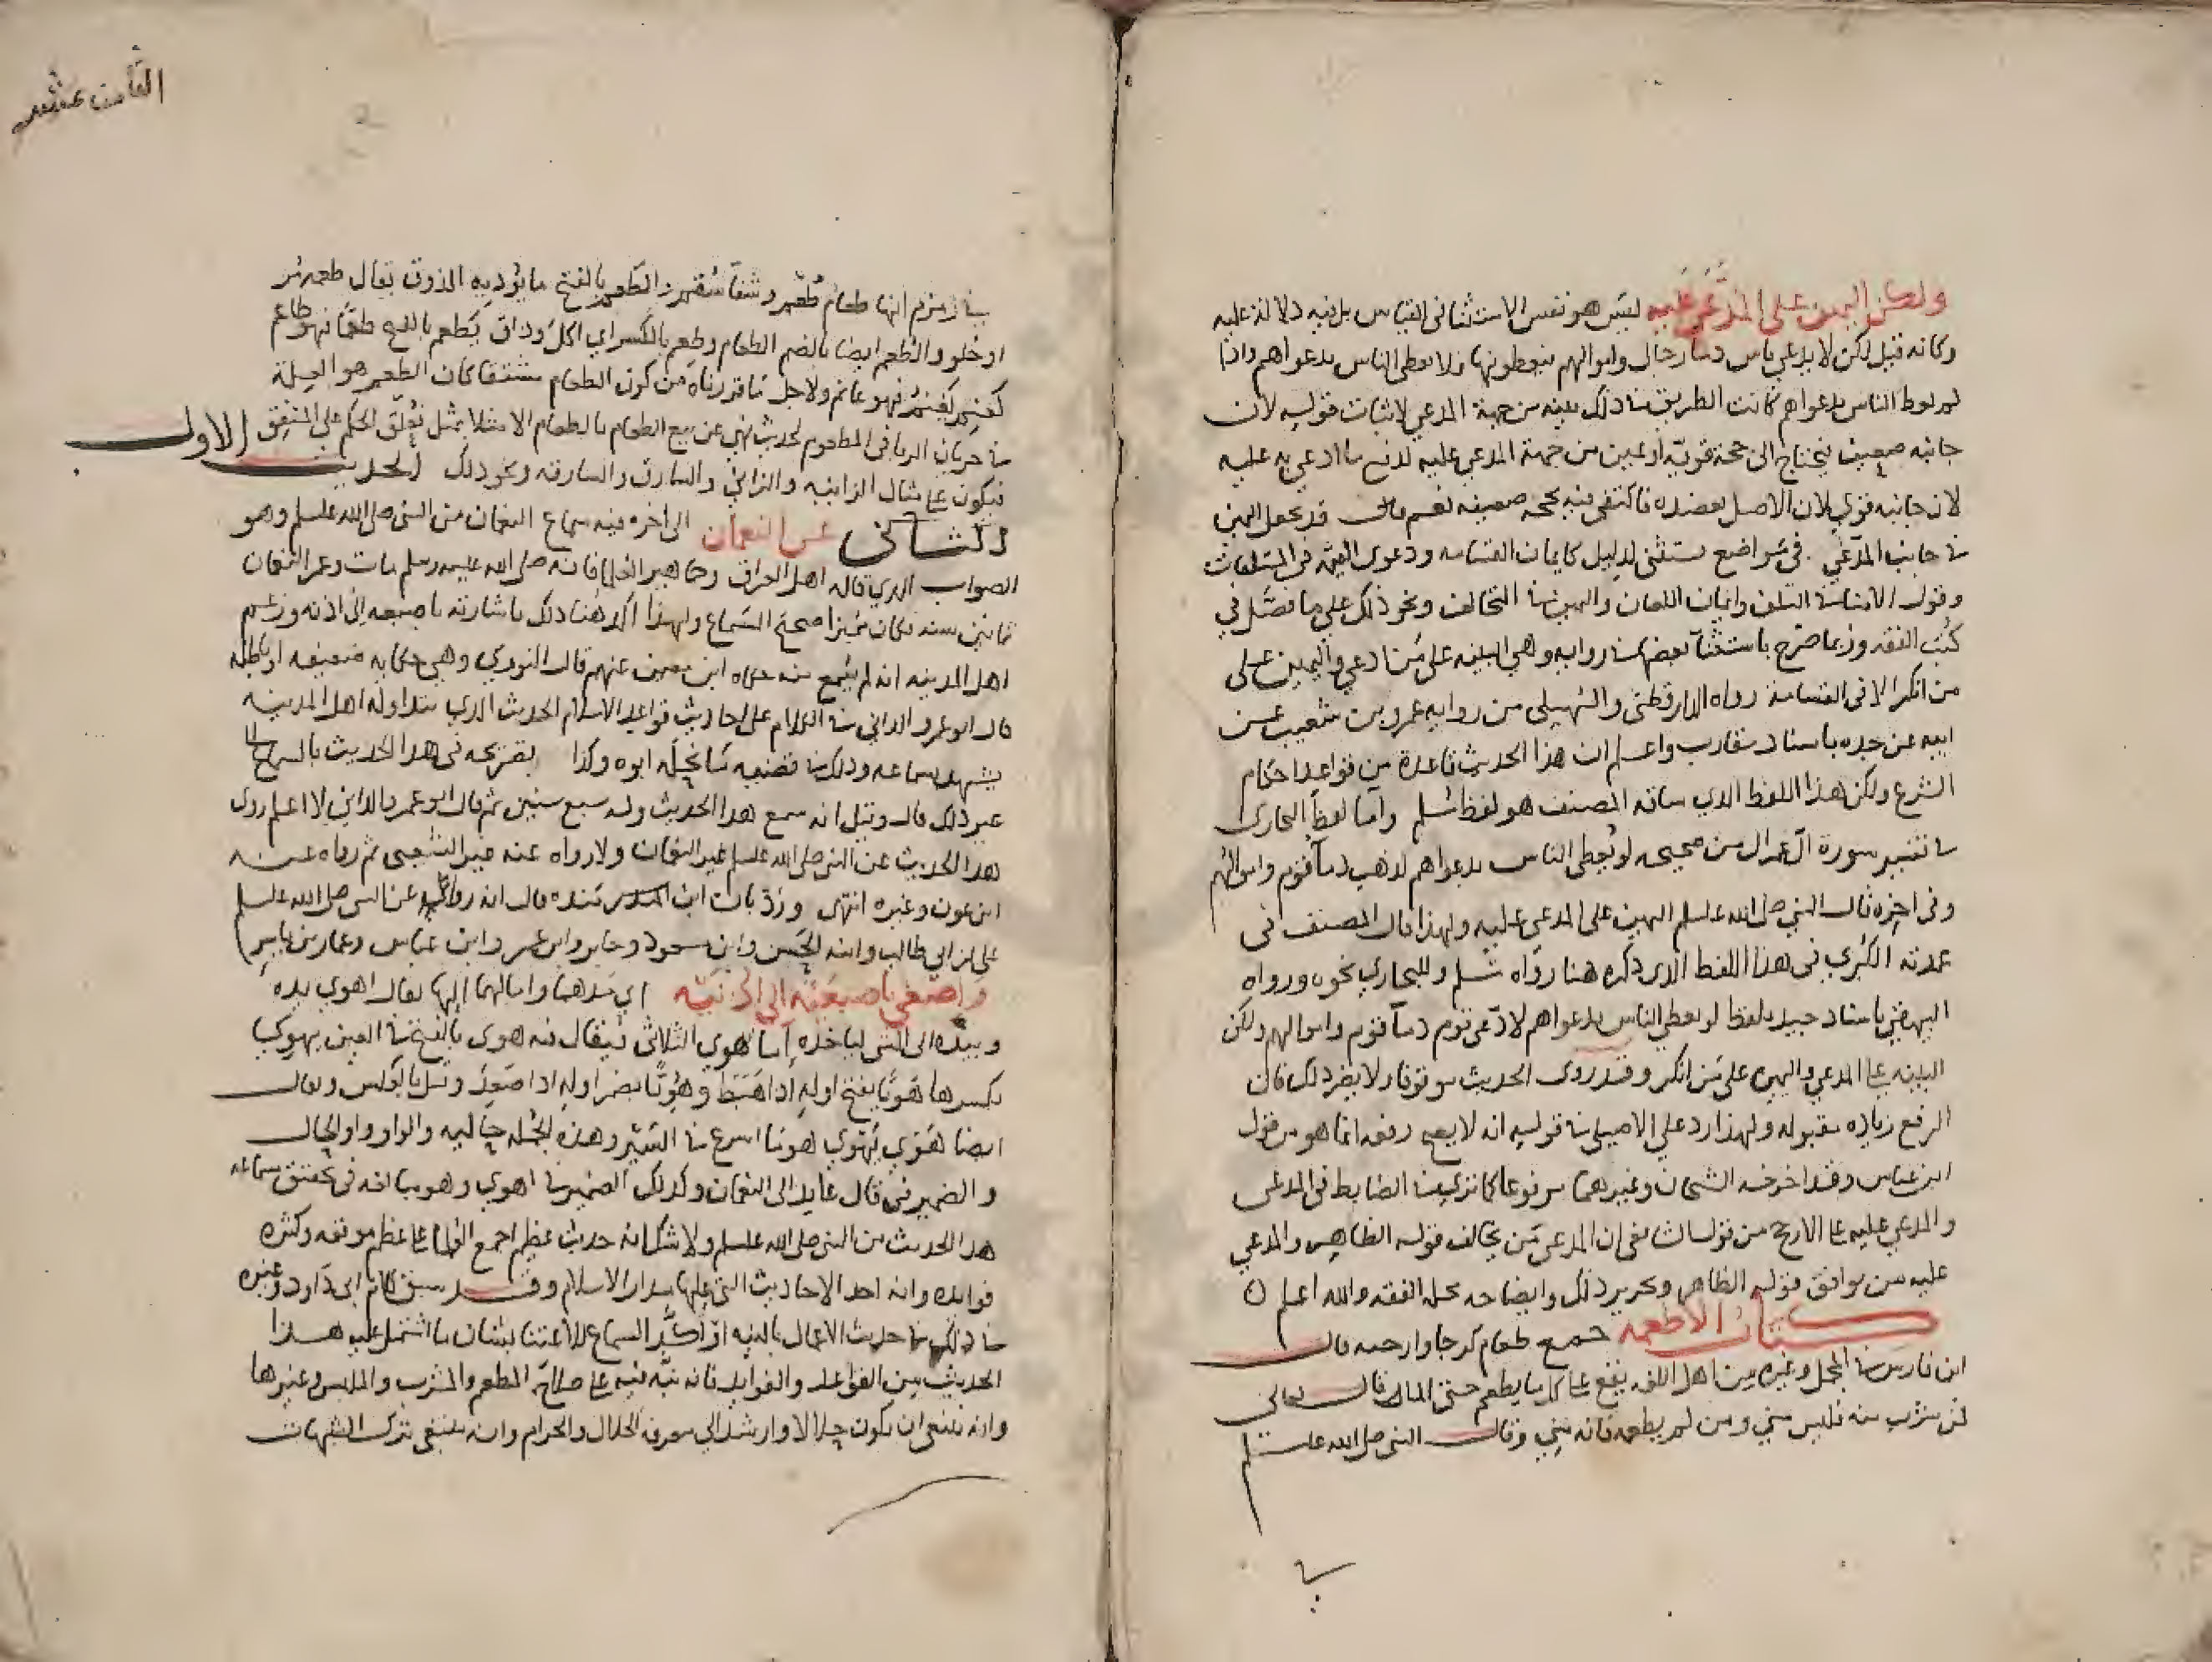 ولكن اليمين على المدَّعَى عَلَيه ليَس هو نفس الاستثنائى القياس بل فيه دلالة عليه
وكانه قيل لكن لا يدعي ناس دما رجال واموالهم فيعطونها فلا يعطى الناس بدعواهم واذا
لم يعط الناس بدعواهم كانت الطريق في ذلك بينه من جهة المدعي لاثبات قوليه لان
جانبه ضعيف فيحتاج الى حجة قويّه او يمين من جهة المدعي عليه لدفع ما ادعي به عليه
لان جانبه قوي لان الاصل يعضده فاكتفى فيه بحجه ضعيفه نعم قد يجعل اليمين
في جانب المدّعي في مَواضع تستثنى لدليل كايمان القسامه ودعوى القيمة في المتلفات
وقول الامنا في التلف وايمان اللعان واليمين في التخالف ونحو ذلك على ما فصِّل في
كتُب الفقه وربما صَرّح باستثنآ بعضها في روايه وهي البينه على مَن ادعي واليمين على
من انكر الا في القسامة رواه الدارقطنى والبيهقى من روايه عمرو بن شعيب عن
ابيه عن جده باسناد مقارب واعلم ان هذا الحديث قاعدة من قواعد احكام
الشرع ولكن هذا اللفظ الذي ساقه المصنف هو لفظ مُسلم وامّا لفظ البخارى
في تفسير سورة آل عمران من صحيحه لو يُعطى الناس بدعواهم لذهب دمآ قوم واموالهم
وفى اخِره قال النبي صلى الله علسلم اليمين على المدعى عليه ولهذا قال المصنف فى
عمدته الكبرى فى هذا اللفظ الذى ذكره هنا روَاه مُسلم وللبخاري نحوه ورواه
البيهقي باسناد جيد بلفظ لو يعطي الناس بدعواهم لادّعى قوم دمآ قوم واموالهم ولكن
البينه على المدعي واليمين على مَن انكر وقد روى الحديث موقوفا ولا يضر ذلك فان
الرفع زياده مقبوله ولهذا رد على الاصيلى في قوليه انه لا يصح رفعه انما هو من قول
ابن عباس وقد اخرجه الشيخان وغيرهما مرفوعا كما تري الضابط في المدعى
والمدعي عليه على الارجح من قولي الشافعى ان المدعى مَن يخالف قوله الظاهر والمدعي
عليه من يوافق قوله الظاهر وتحرير ذلك وايضاحه محله الفقه والله اعلم
كتاب الاطعمه جمع طعام كرجا وارحيه قال
ابن فارس في المجمل وغيره من اهل اللغه يقع على كل ما يطعم حتى الماء قال تعالى
فمن شرب منه فليس مني ومن لم يطعمه فانه مني وقال النبى صلى الله علسلم
في
الثامن عشر
في زمزم انها طعام طُعْمٍ وشفآ سُقمٍ والطَعم بالفتح ما يؤديه الذوق يقال طعمه مُر
او حلو والطُعم ايضا بالضم الطعام وطَعِم بالكسر اي اكلَ وذاق يَطعم بالفتح طعَما فهو طاعم
كغنِم يَغنم فهو غانم ولاجل مَا قررناه من كون الطعام مشتقا كان الطعم هو العِلة
في جريان الربا في المطعوم لحديث نهى عن بيع الطعام بالطعام الا مثلا بمثل تعلّق الحكم على المشتق
فيكون على مثال الزانيه والزاني والسارق والسارقه ونحو ذلك الحديث الاول
والثانى عن النعمان الى اخره فيه سماع النعمان من النبى صلى الله علسلم وهو
الصواب الذي قاله اهل العراق وجماهير العلما فانه صلى الله عليه وسلم مات وعمر النعمان
ثمانين سنه فكان مُميزا صحيح السَماع ولهذا اكد هُنا ذلك باشارته باصبعه الى اذنه وزعم
اهل المدينه انه لم يَسْمع منه حكاه ابن معين عنهم قال النووي وهي حكايه ضعيفه او باطله
قال ابو عمرو الدانى في الكلام على احاديث قواعد الاسلام الحديث الذي يتداوله اهل المدينه
يشهد بسماعه وذلك في قضيه مَا نحلَه ابوه وكذا بتصريحه فى هذا الحديث بالسماع
غير ذلك قال وقيل انه سمع هذا الحديث وله سبع سنين ثم قال ابو عمرو الدانى لا اعلم روى
هذا الحديث عن النبى صلى الله علسلم غير النعمان ولا رواه عنه غير الشعبى ثم رواه عنه
ابن عون وغيره انتهى ورُدّ بان ابن منده قال انه رواه عن النبى صلى الله علسلم
على بن ابى طالب وابنه الحَسن وابن مسعود وجابر وابن عمر وابن عباس وعمار بن ياسر
واصغى باصبعَيْه الى اُذُنيَه اي مَدهما وامالهما اليها يقال اهوى بيده
وبيده الى الشى لياخذه امّا هَوى الثلاثى فيقال منه هوى بالفتح في العين يهوي
بكسرها هَوِيًّا بفتح اولهِ اِذا هَبَط وهُوِيًّا بضم اولهِ اذا صَعِدَ وقيل بالعكس ويقال
ايضا هَوَي يَهْوي هويا اسرع في السَيْر وهذه الجُمله حاليه والواو واو الحال
والضمير فى قال عايد الى النعمان وكذلك الضمير في اهوي وهو مبالغه فى تحقق سماعه
هذا الحديث من النبى صلى الله علسلم ولا شك انه حديث عظيم اجمع العلما على عظم موقعه وكثره
فوايده وانه احد الاحاديث التى عليها مدار الاسلام وقد سبق كلام ابى دَاود وغيره
في ذلك في حديث الاعمال بالنيه اذ اكَد السماع للاعتنا بشان ما اشتمل عليه هذا
الحديث من القواعد والفوايد فانه نبّه فيه على صلاح المطعم والمشرب والملبس وغيرها
وانه ينبغى ان يكون حلالا وارشد الى معرفه الحلال والحرام وانه ينبغى ترك الشبهات